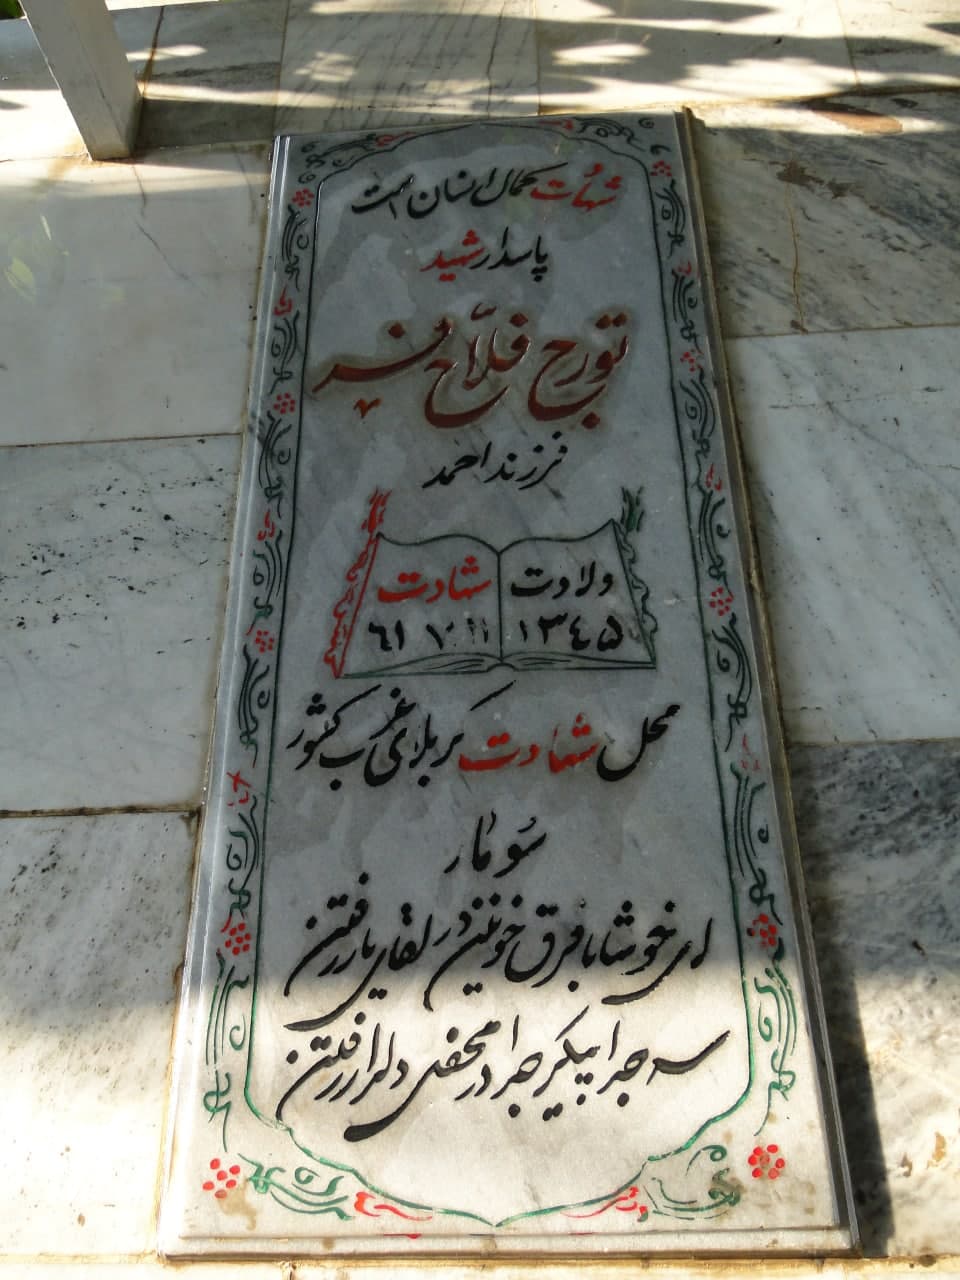 شهادت کمال انسان است
پاسدار شهید
تورج فلّاح فر
فرزند احمد
ولادت شهادت
۱۳۴۵ ۱۱ ۷ ۶۱
محل شهادت کربلای غرب کشور
سومار
ای خوشا با فرق خونین در لقای یار رفتن
سر جدا پیکر جدا در محفل دلدار رفتن